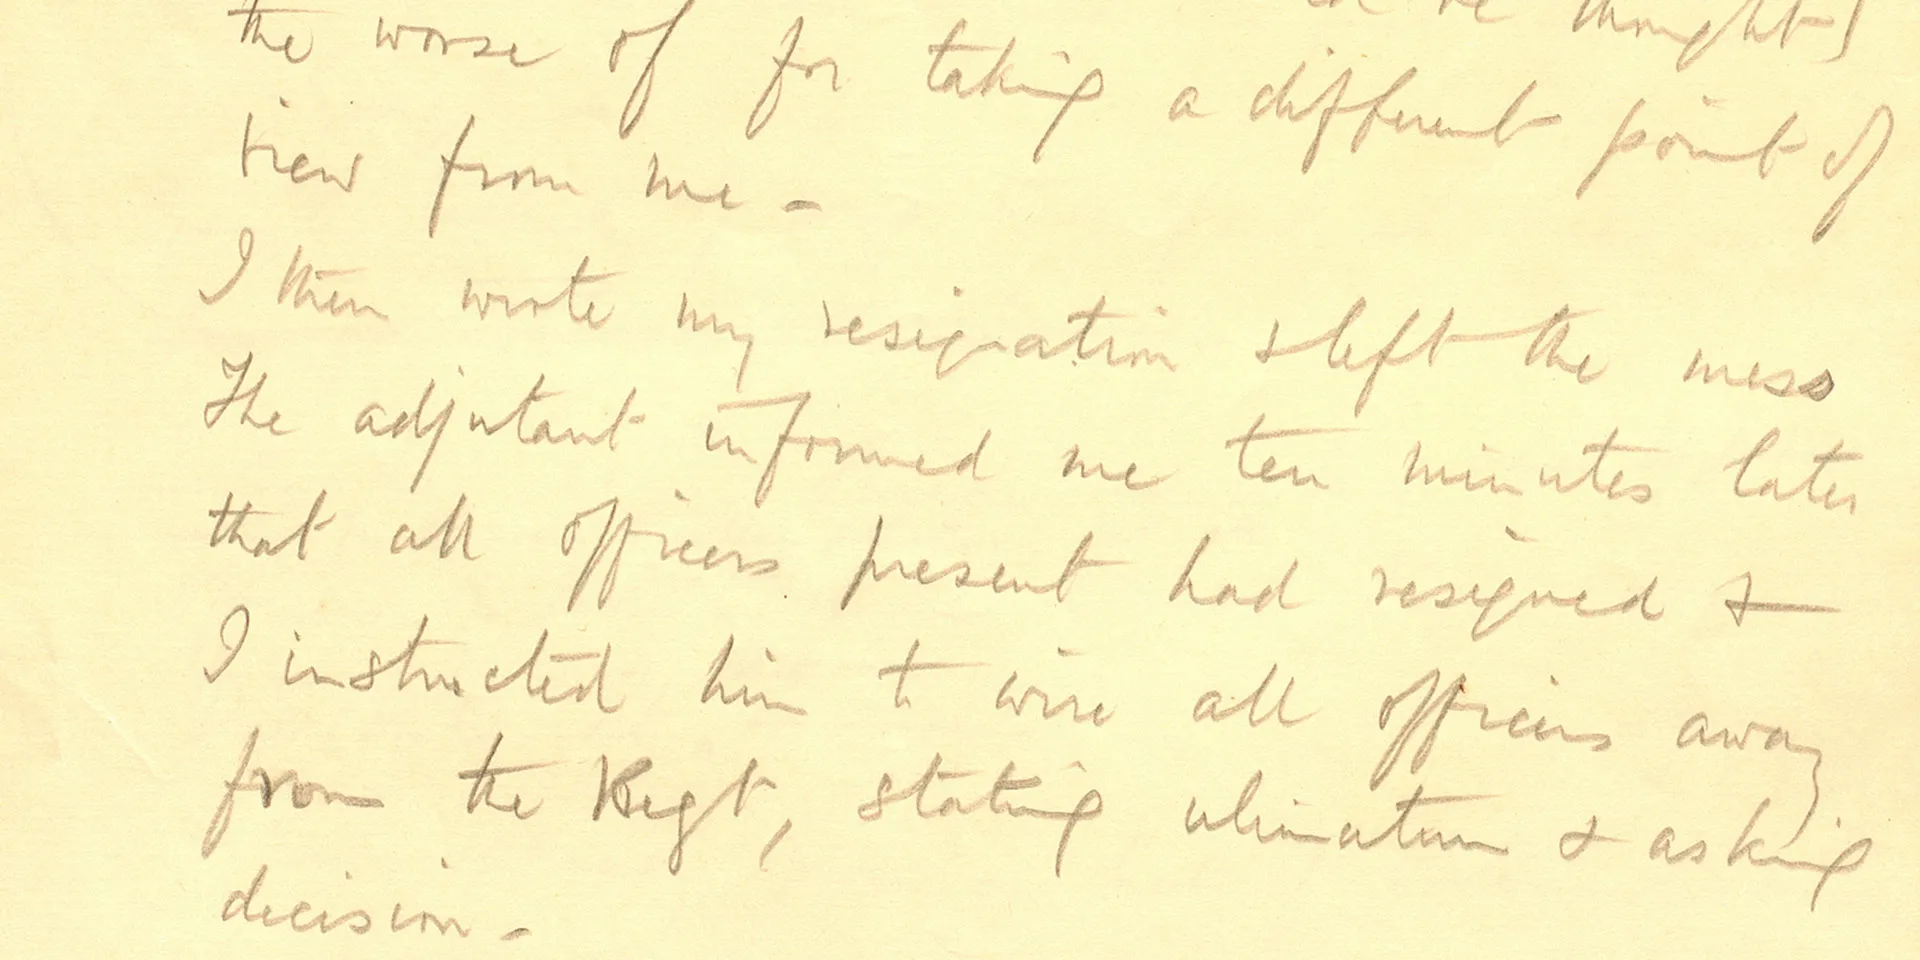 be thought
the worse of for taking a different point of
view from me -
I then wrote my resignation & left the mess
The adjutant informed me ten minutes later
that all officers present had resigned &
I instructed him to wire all officers away
from the Regt, stating ulimatum & asking
decision -